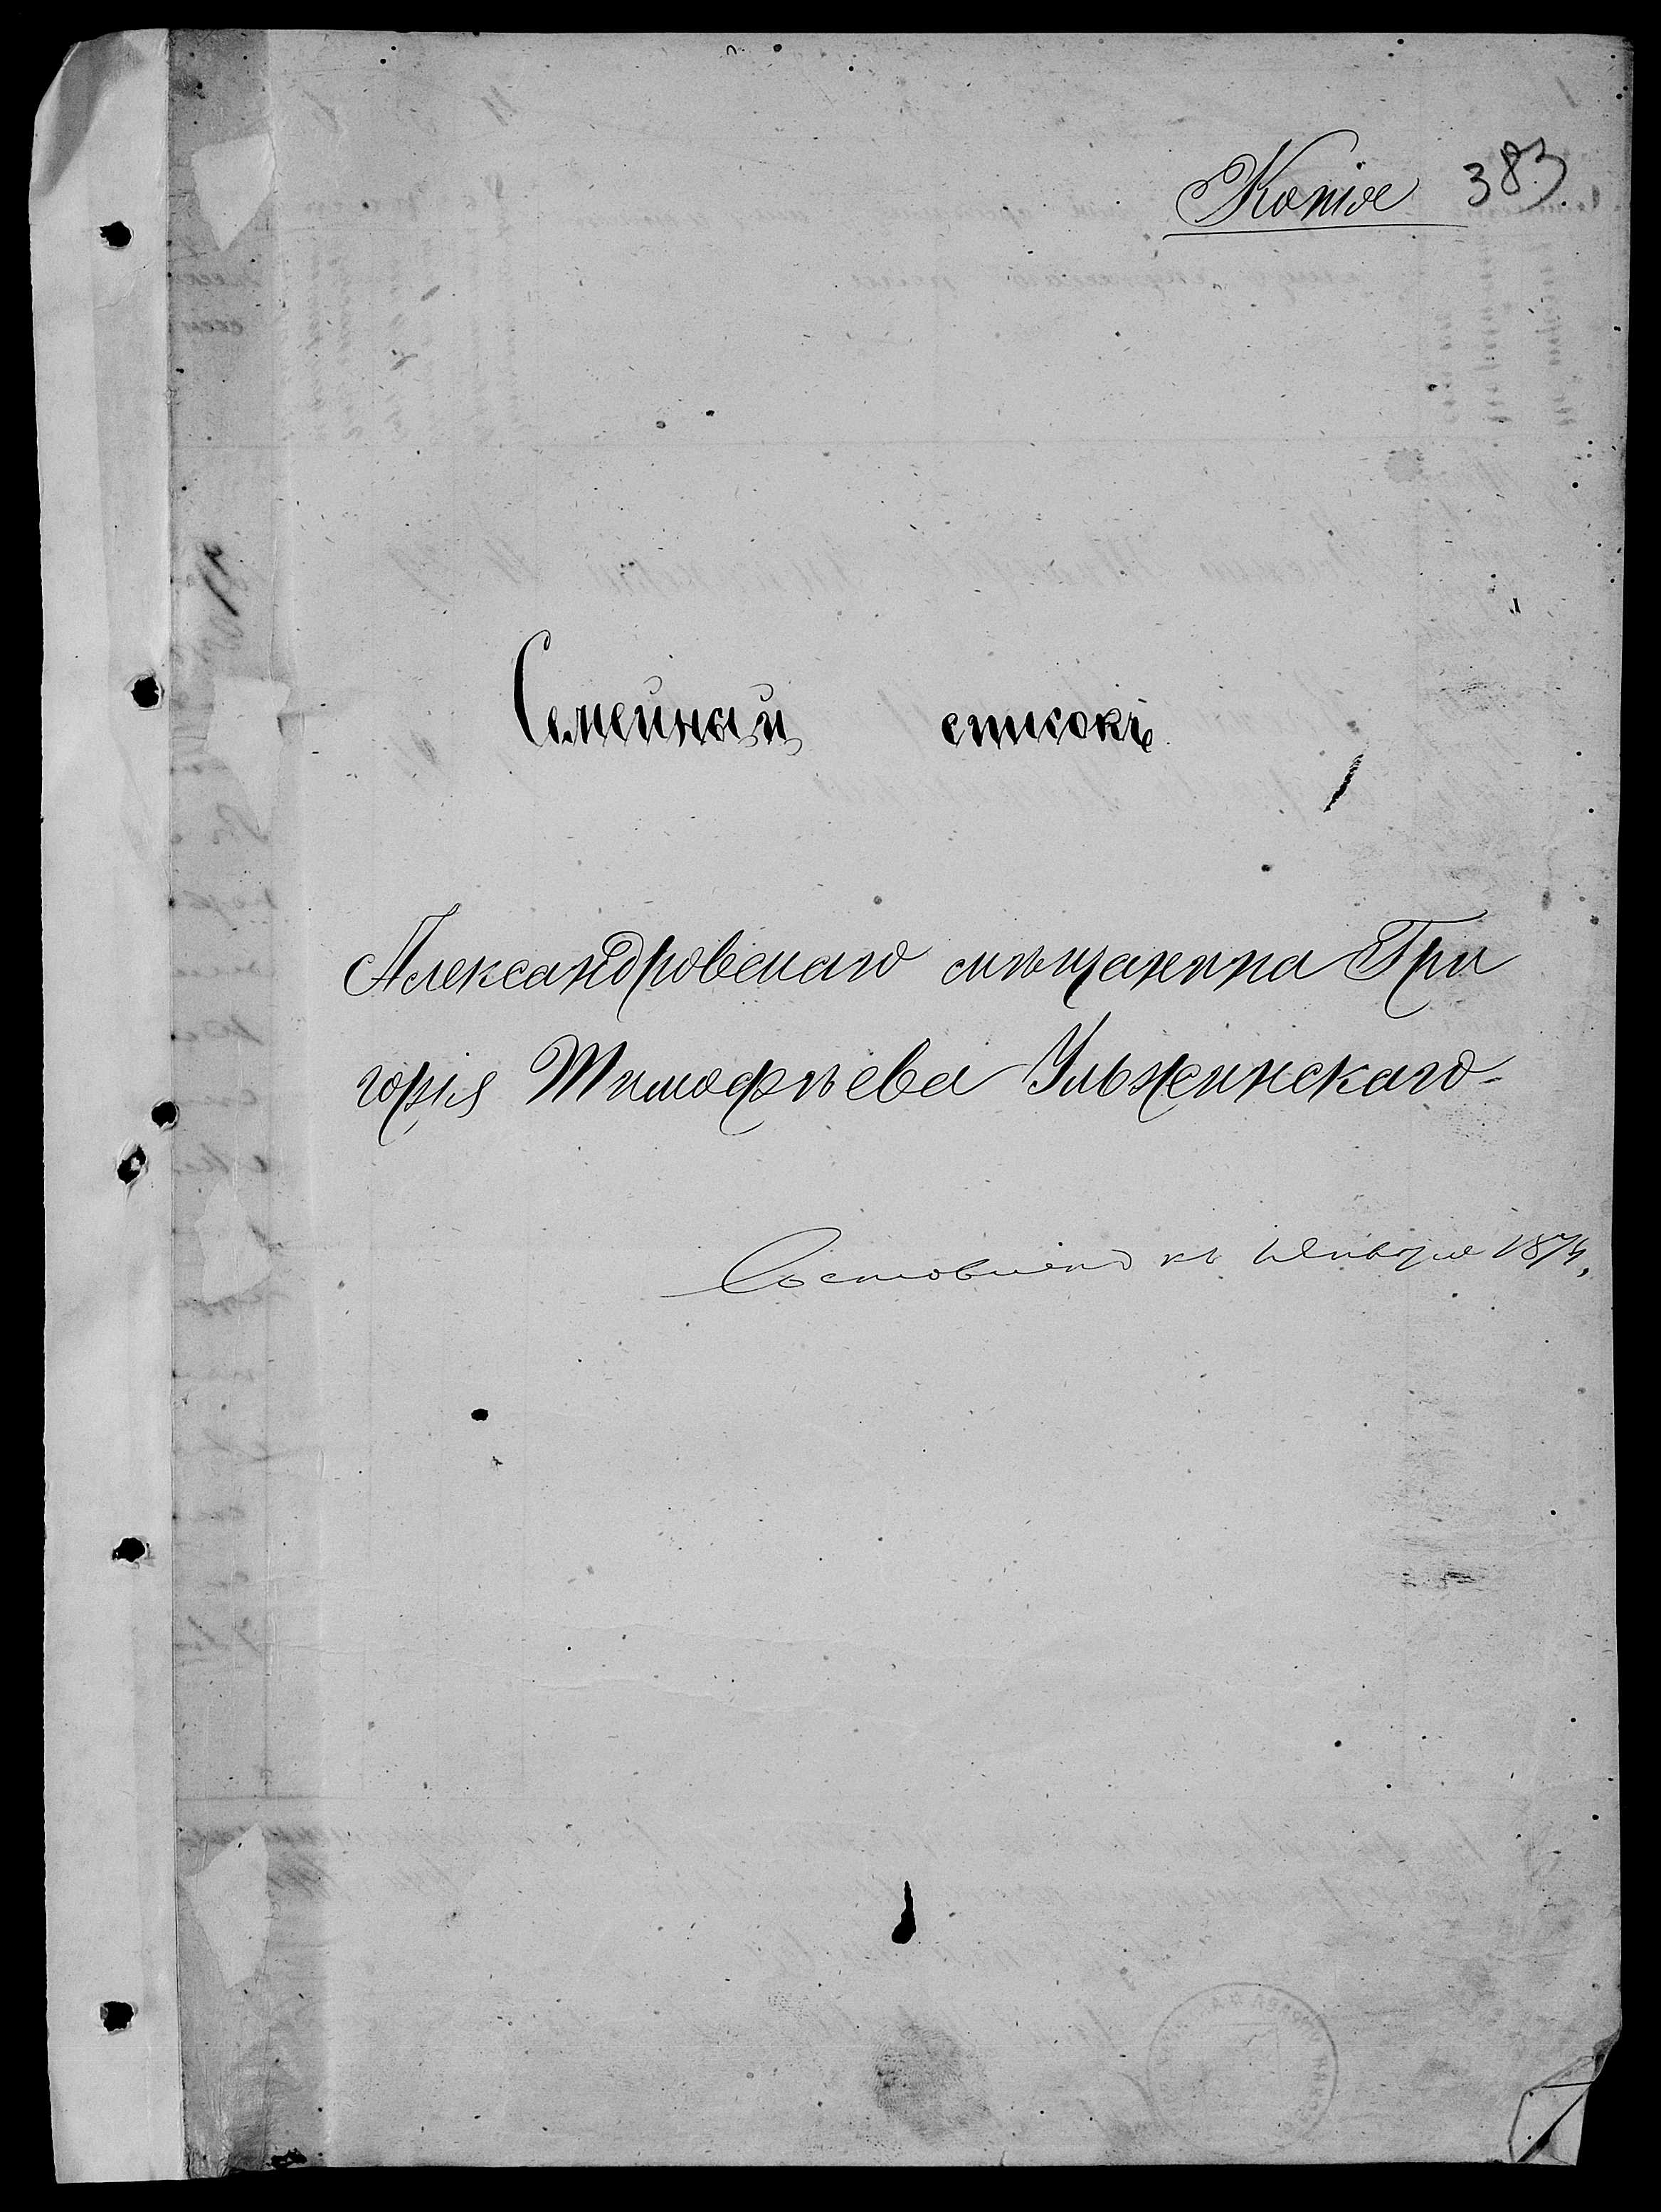 Копія 383.
Семейный списокъ
Александровскаго мѣщанина Гри
горія Тимофѣева
Составленъ къ Января 1874,